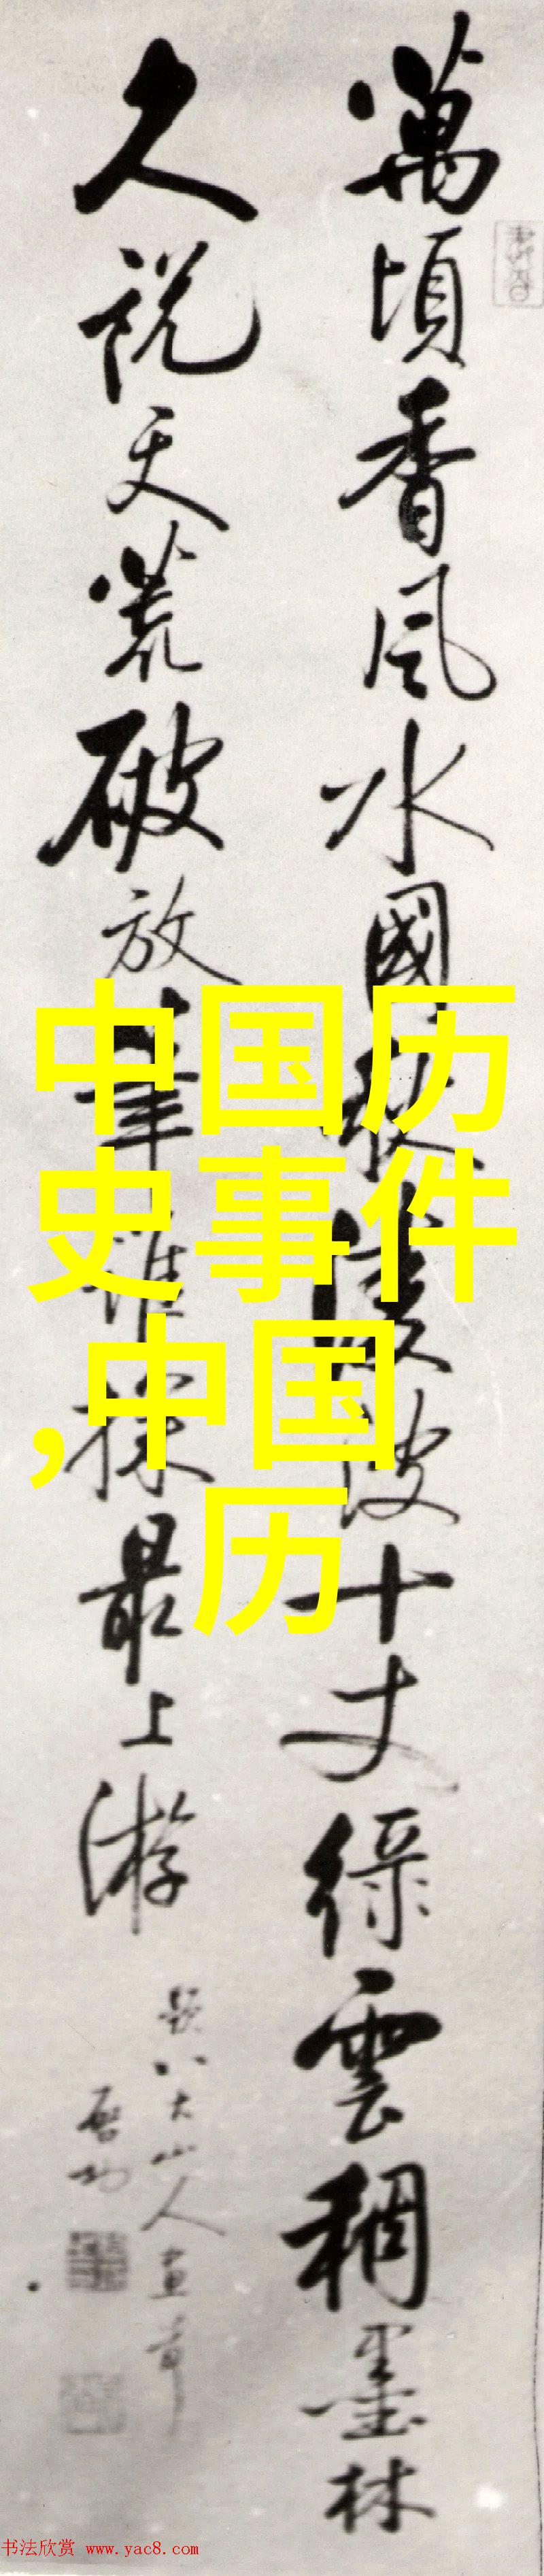 萬頃香風水國秋凌波十丈綠雲稠墨林
久說天荒破放筆誰探最上游
題八大山人畫卷
啓功
中国历
史事件
,中国
历
书法欣赏 www.yac8.com